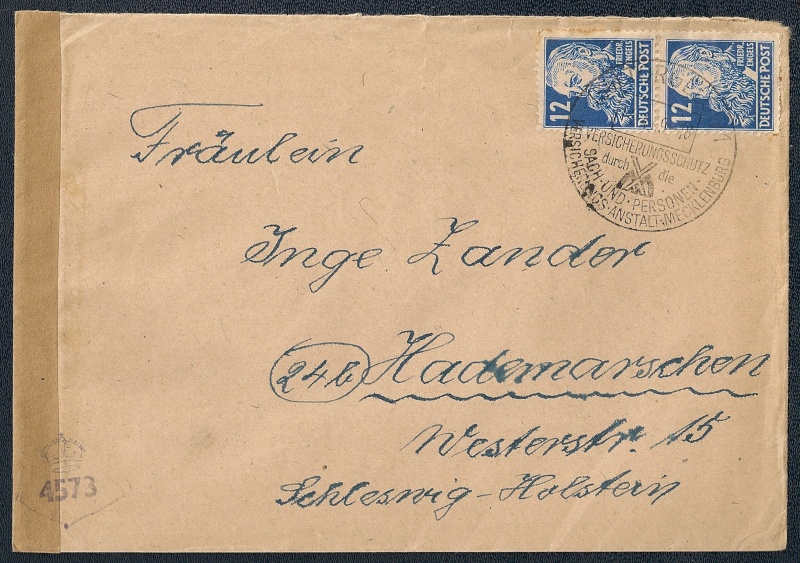 12 FRIEDR. ENGELS DEUTSCHE POST
12 FRIEDR. ENGELS DEUTSCHE POST
VERSICHERUNGSSCHUTZ
durch die
SACH-UND-PERSONEN-
VERSICHERUNGS-ANSTALT-MECKLENBURG
Fräulein
Inge Zander
24b Hademarschen
Westerstr. 15
Schleswig-Holstein
4573